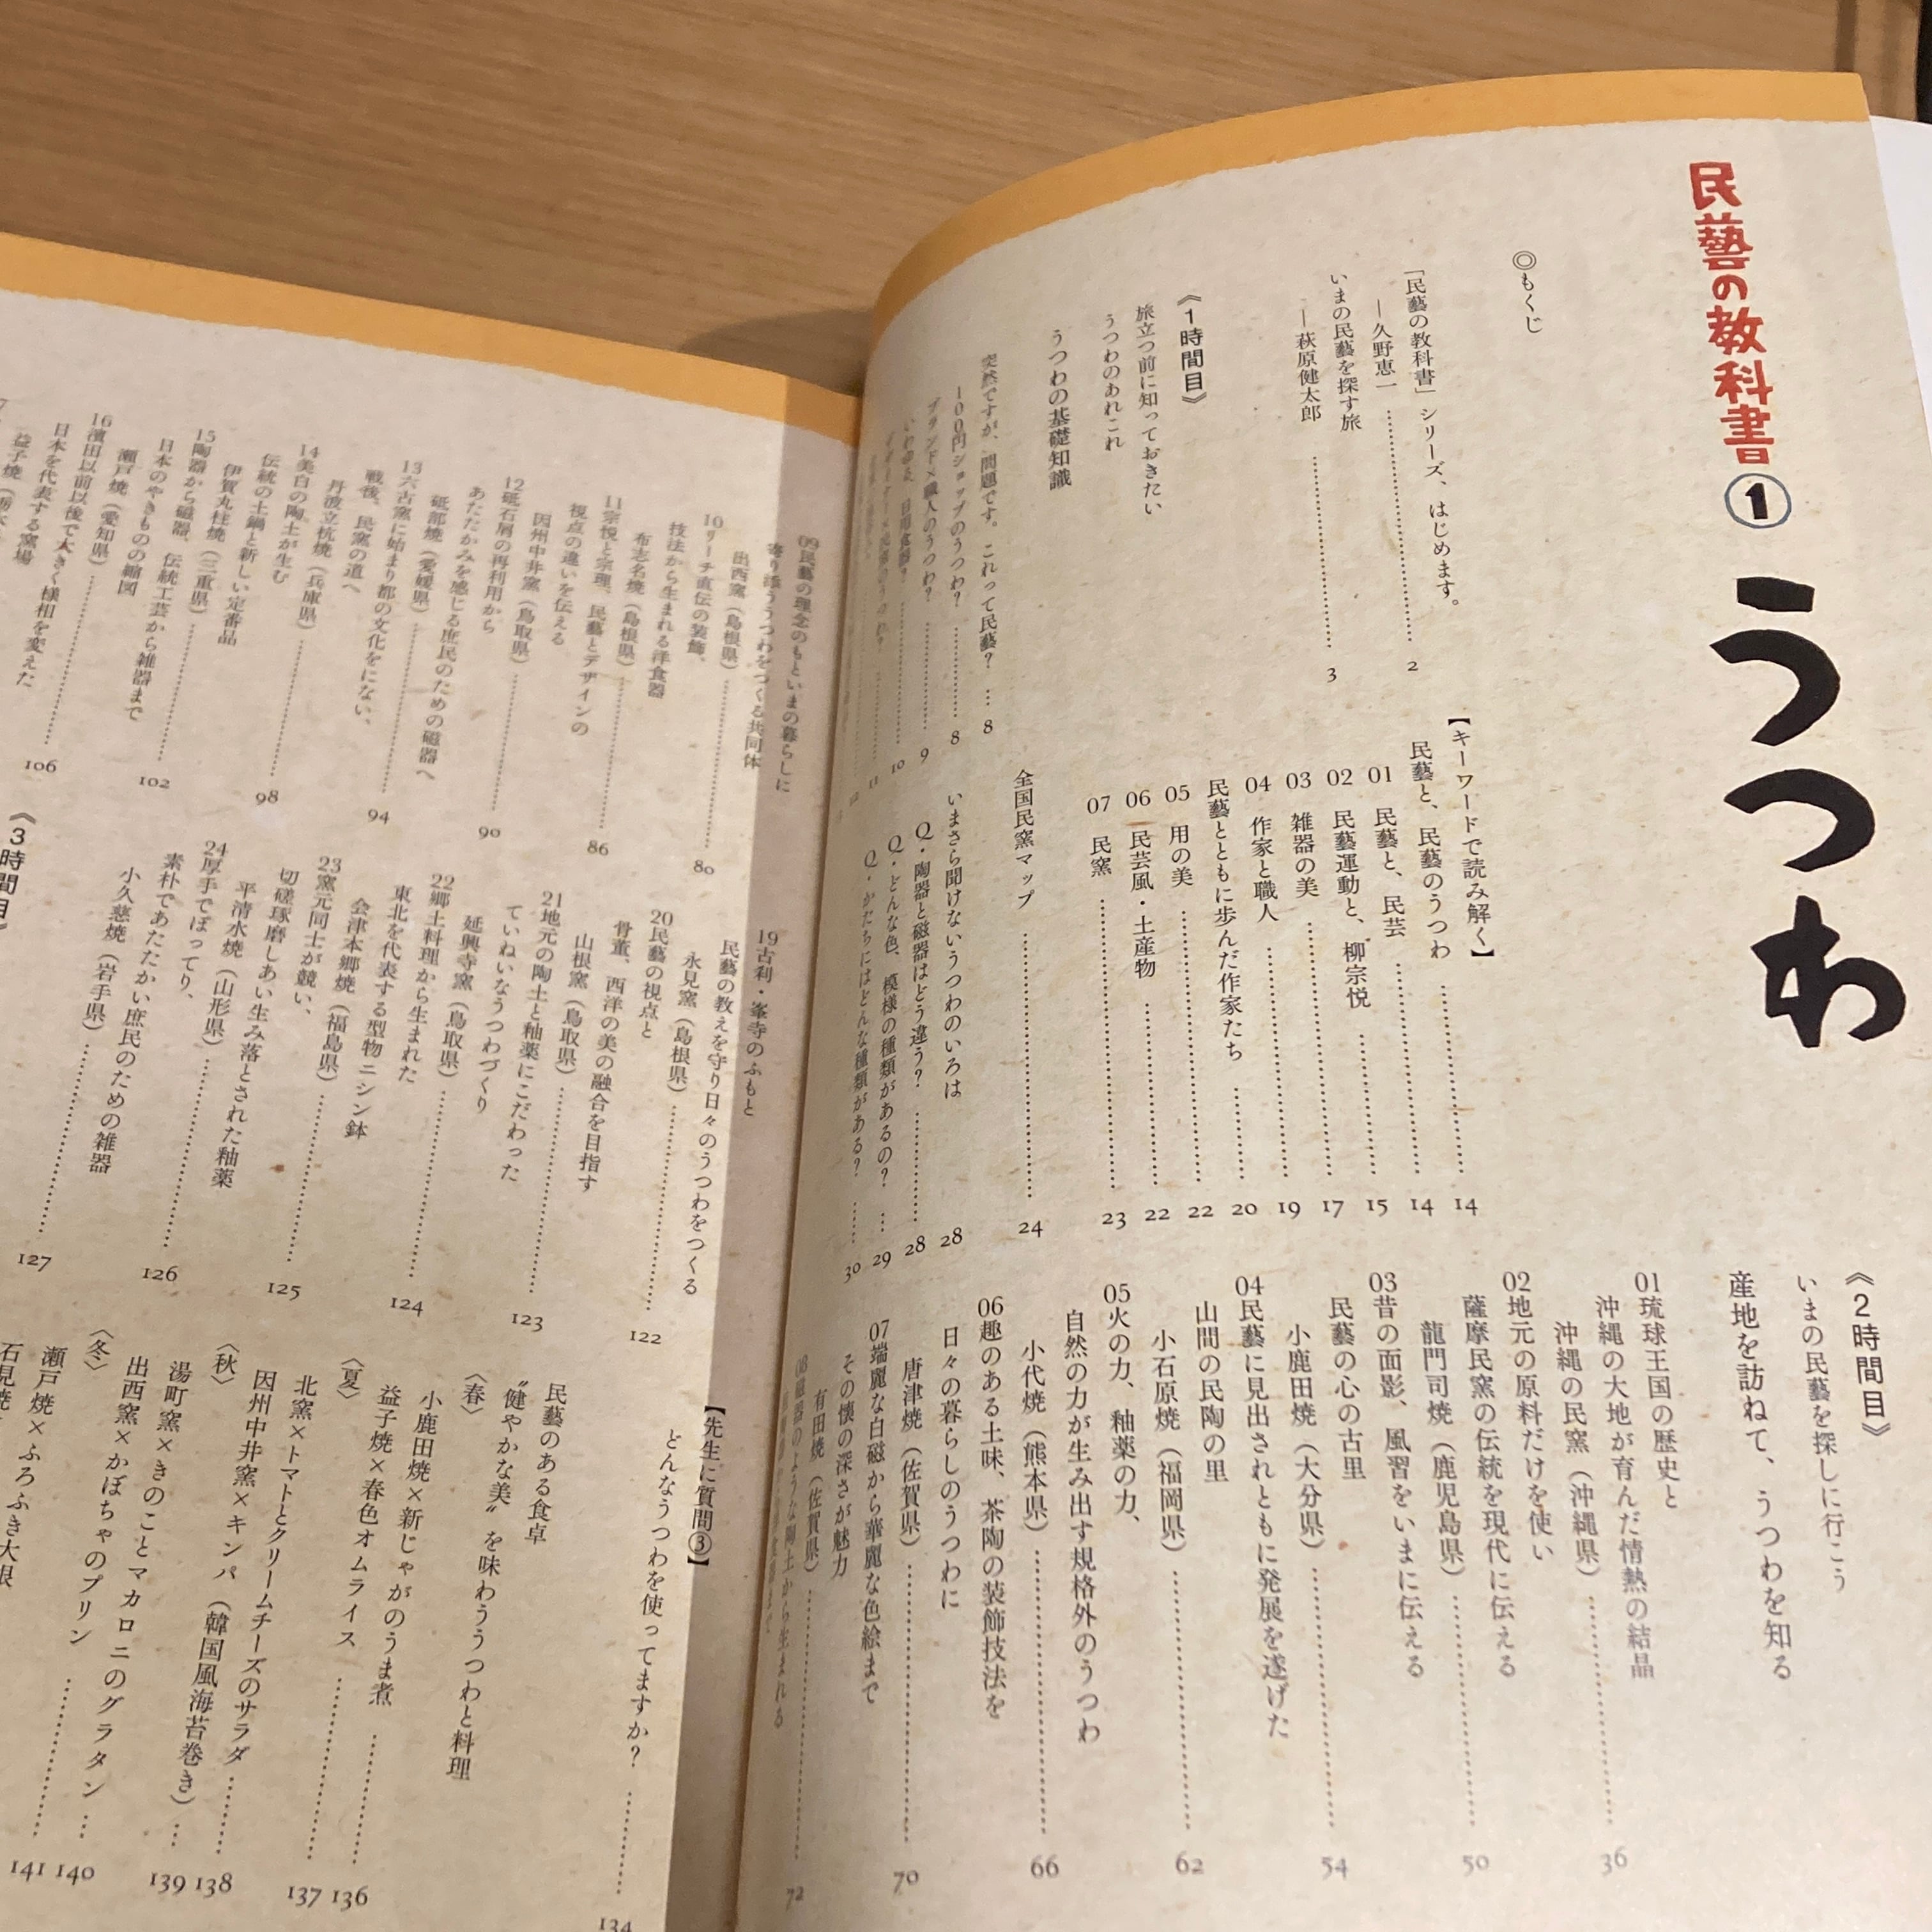 民藝の教科書①
うつわ
◎もくじ
「民藝の教科書」シリーズ、はじめます。
―久野恵一 2
いまの民藝を探す旅
―萩原健太郎 3
《1時間目》
旅立つ前に知っておきたい
うつわのあれこれ
うつわの基礎知識
突然ですが、問題です。これって民藝? 8
100円ショップのうつわ? 8
ブランド×職人のうつわ? 9
いわゆる、日用食器? 10
11
12
【キーワードで読み解く】
民藝と、民藝のうつわ 14
01 民藝と、民芸 14
02 民藝運動と、柳宗悦 15
03 雑器の美 17
04 作家と職人 19
民藝とともに歩んだ作家たち 20
05 用の美 22
06 民芸風・土産物 22
07 民窯 23
全国民窯マップ 24
いまさら聞けないうつわのいろは 28
Q・陶器と磁器はどう違う? 28
Q・どんな色、模様の種類があるの? 29
Q・かたちにはどんな種類がある? 30
《2時間目》
いまの民藝を探しに行こう
産地を訪ねて、うつわを知る
01琉球王国の歴史と
沖縄の大地が育んだ情熱の結晶
沖縄の民窯（沖縄県） 36
02地元の原料だけを使い
薩摩民窯の伝統を現代に伝える
龍門司焼（鹿児島県） 50
03昔の面影、風習をいまに伝える
民藝の心の古里
小鹿田焼（大分県） 54
04民藝に見出されともに発展を遂げた
山間の民陶の里
小石原焼（福岡県） 62
05火の力、釉薬の力、
自然の力が生み出す規格外のうつわ
小代焼（熊本県） 66
06趣のある土味、茶陶の装飾技法を
日々の暮らしのうつわに
唐津焼（佐賀県） 70
07端麗な白磁から華麗な色絵まで
その懐の深さが魅力
有田焼（佐賀県） 72
08磁器のような陶土から生まれる
09民藝の理念のもといまの暮らしに
寄り添ううつわをつくる共同体
出西窯（島根県） 80
10リーチ直伝の装飾、
技法から生まれる洋食器
布志名焼（島根県） 86
11宗悦と宗理、民藝とデザインの
視点の違いを伝える
因州中井窯（鳥取県） 90
12砥石屑の再利用から
あたたかみを感じる庶民のための磁器へ
砥部焼（愛媛県） 94
13六古窯に始まり都の文化をにない、
戦後、民窯の道へ
丹波立杭焼（兵庫県） 98
14美白の陶土が生む
伝統の土鍋と新しい定番品
伊賀丸柱焼（三重県） 102
15陶器から磁器、伝統工芸から雑器まで
日本のやきものの縮図
瀬戸焼（愛知県） 106
16濱田以前以後で大きく様相を変えた
日本を代表する窯場
益子焼
19古刹・峯寺のふもと
民藝の教えを守り日々のうつわをつくる
永見窯（島根県） 122
20民藝の視点と
骨董、西洋の美の融合を目指す
山根窯（鳥取県） 123
21地元の陶土と釉薬にこだわった
ていねいなうつわづくり
延興寺窯（鳥取県） 124
22郷土料理から生まれた
東北を代表する型物ニシン鉢
会津本郷焼（福島県） 125
23窯元同士が競い、
切磋琢磨しあい生み落とされた釉薬
平清水焼（山形県） 126
24厚手でぼってり、
素朴であたたかい庶民のための雑器
小久慈焼（岩手県） 127
《3時間目》
【先生に質問③】
どんなうつわを使ってますか? 134
民藝のある食卓
“健やかな美”を味わううつわと料理
〈春〉
小鹿田焼×新じゃがのうま煮 136
益子焼×春色オムライス 137
〈夏〉
北窯×トマトとクリームチーズのサラダ 138
因州中井窯×キンパ（韓国風海苔巻き） 139
〈秋〉
湯町窯×きのことマカロニのグラタン 140
出西窯×かぼちゃのプリン 141
〈冬〉
瀬戸焼×ふろふき大根